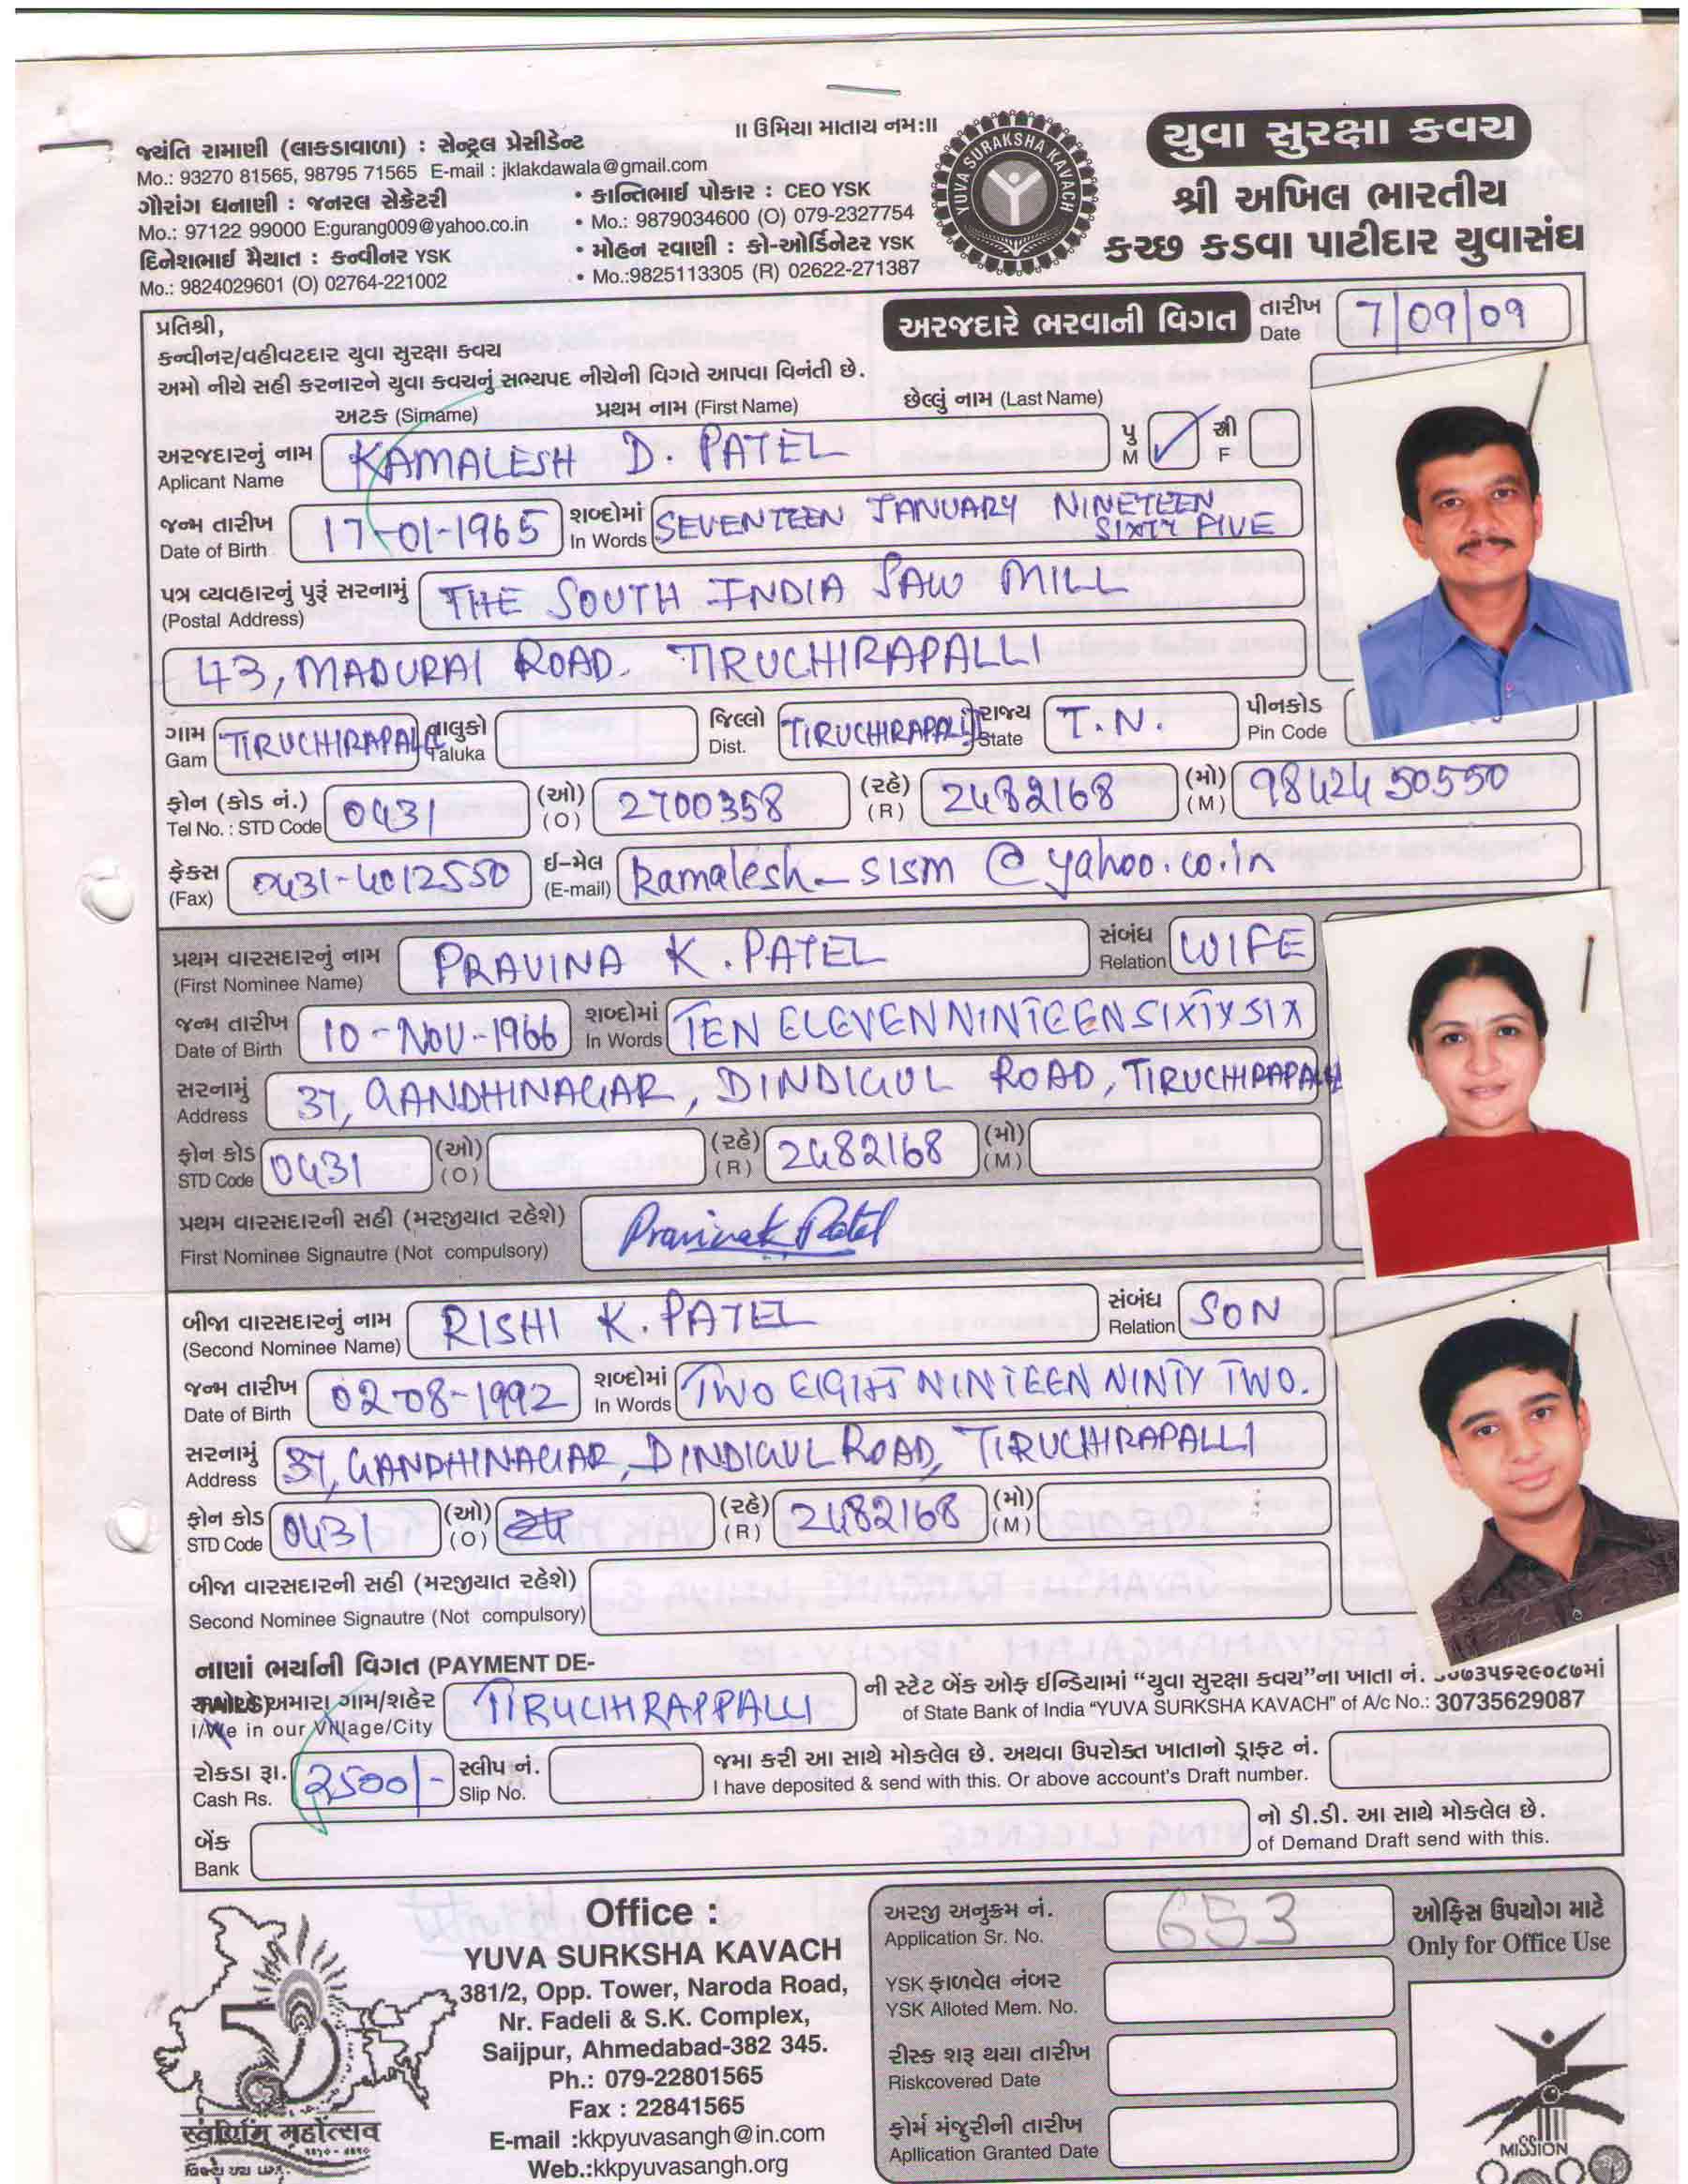 ॥ ઉમિયા માતાય નમઃ॥
જયંતિ રામાણી (લાકડાવાળા) : સેન્ટ્રલ પ્રેસીડેન્ટ
Mo.: 93270 81565, 98795 71565 E-mail : jklakdawala@gmail.com
ગૌરાંગ ધનાણી : જનરલ સેક્રેટરી
Mo.: 97122 99000 E:gurang009@yahoo.co.in
દિનેશભાઈ મૈયાત : કન્વીનર YSK
Mo.: 9824029601 (O) 02764-221002
• કાન્તિભાઈ પોકાર : CEO YSK
• Mo.: 9879034600 (O) 079-2327754
• મોહન રવાણી : કો-ઓર્ડિનેટર YSK
• Mo.:9825113305 (R) 02622-271387
YUVA SURAKSHA KAVACH
યુવા સુરક્ષા કવચ
શ્રી અખિલ ભારતીય
કચ્છ કડવા પાટીદાર યુવાસંઘ
અરજદારે ભરવાની વિગત તારીખ Date 7/09/09
પ્રતિશ્રી,
કન્વીનર/વહીવટદાર યુવા સુરક્ષા કવચ
અમો નીચે સહી કરનારને યુવા કવચનું સભ્યપદ નીચેની વિગતે આપવા વિનંતી છે.
અટક (Sirname) પ્રથમ નામ (First Name) છેલ્લું નામ (Last Name)
અરજદારનું નામ Aplicant Name KAMALESH D. PATEL પુ M ✓ સ્રી F
જન્મ તારીખ Date of Birth 17-01-1965 શબ્દોમાં In Words SEVENTEEN JANUARY NINETEEN SIXTY FIVE
પત્ર વ્યવહારનું પુરૂં સરનામું (Postal Address) THE SOUTH INDIA SAW MILL
43, MADURAI ROAD. TIRUCHIRAPALLI
ગામ Gam TIRUCHIRAPALLI તાલુકો Taluka જિલ્લો Dist. TIRUCHIRAPALLI રાજ્ય State T.N. પીનકોડ Pin Code
ફોન (કોડ નં.) Tel No. : STD Code 0431 (ઓ) (O) 2700358 (રહે) (R) 2482168 (મો) (M) 98424 50550
ફેક્સ (Fax) 0431-4012550 ઈ-મેલ (E-mail) kamalesh_sism@yahoo.co.in
પ્રથમ વારસદારનું નામ (First Nominee Name) PRAVINA K. PATEL સંબંધ Relation WIFE
જન્મ તારીખ Date of Birth 10-NOV-1966 શબ્દોમાં In Words TEN ELEVEN NINTEEN SIXTY SIX
સરનામું Address 37, GANDHINAGAR, DINDIGUL ROAD, TIRUCHIRAPALLI
ફોન કોડ STD Code 0431 (ઓ) (O) (રહે) (R) 2482168 (મો) (M)
પ્રથમ વારસદારની સહી (મરજીયાત રહેશે)
First Nominee Signautre (Not compulsory) Pravinak Patel
બીજા વારસદારનું નામ (Second Nominee Name) RISHI K. PATEL સંબંધ Relation SON
જન્મ તારીખ Date of Birth 02-08-1992 શબ્દોમાં In Words TWO EIGHT NINTEEN NINTY TWO.
સરનામું Address 37, GANDHINAGAR, DINDIGUL ROAD, TIRUCHIRAPALLI
ફોન કોડ STD Code 0431 (ઓ) (O) (રહે) (R) 2482168 (મો) (M)
બીજા વારસદારની સહી (મરજીયાત રહેશે)
Second Nominee Signautre (Not compulsory)
નાણાં ભર્યાની વિગત (PAYMENT DE-
અમારા ગામ/શહેર TIRUCHRAPPALLI ની સ્ટેટ બેંક ઓફ ઈન્ડિયામાં “યુવા સુરક્ષા કવચ”ના ખાતા નં. ૩૦૭૩૫૬૨૯૦૮૭માં
I/We in our Village/City of State Bank of India “YUVA SURKSHA KAVACH” of A/c No.: 30735629087
રોકડા રૂા. Cash Rs. 2500/- સ્લીપ નં. Slip No. જમા કરી આ સાથે મોકલેલ છે. અથવા ઉપરોક્ત ખાતાનો ડ્રાફ્ટ નં.
I have deposited & send with this. Or above account's Draft number.
બેંક Bank નો ડી.ડી. આ સાથે મોકલેલ છે.
of Demand Draft send with this.
Office :
YUVA SURKSHA KAVACH
381/2, Opp. Tower, Naroda Road,
Nr. Fadeli & S.K. Complex,
Saijpur, Ahmedabad-382 345.
Ph.: 079-22801565
Fax : 22841565
E-mail :kkpyuvasangh@in.com
Web.:kkpyuvasangh.org
અરજી અનુક્રમ નં. Application Sr. No. 653
ઓફિસ ઉપયોગ માટે
Only for Office Use
YSK ફાળવેલ નંબર
YSK Alloted Mem. No.
રીસ્ક શરૂ થયા તારીખ
Riskcovered Date
ફોર્મ મંજુરીની તારીખ
Apllication Granted Date
50
स्वर्णिम महोत्सव
MISSION